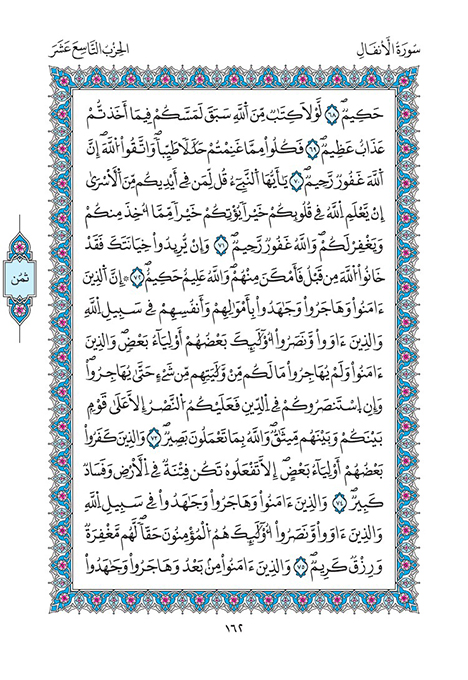 سُورَةُ الْأَنفَالِ
الحِزْبُ التَّاسِعَ عَشَرَ
حَكِيمٌ ٦٨ لَّوْلَا كِتَٰبٌ مِّنَ اَ۬للَّهِ سَبَقَ لَمَسَّكُمْ فِيمَا أَخَذتُّمْ
عَذَابٌ عَظِيمٌ ٦٩ فَكُلُواْ مِمَّا غَنِمْتُمْ حَلَٰلاٗ طَيِّباٗ وَاتَّقُواْ اُ۬للَّهَ إِنَّ
اَ۬للَّهَ غَفُورٌ رَّحِيمٌ ٧٠ يَٰأَيُّهَا اَ۬لنَّبِيٓءُ قُل لِّمَن فِي أَيْدِيكُم مِّنَ اَ۬لْأَسْرَىٰ
إِنْ يَّعْلَمِ اِ۬للَّهُ فِي قُلُوبِكُمْ خَيْراٗ يُؤْتِكُمْ خَيْراٗ مِّمَّا أُخِذَ مِنكُمْ
وَيَغْفِرْ لَكُمْ وَاللَّهُ غَفُورٌ رَّحِيمٌ ٧١ وَإِنْ يُّرِيدُواْ خِيَانَتَكَ فَقَدْ
خَانُواْ اُ۬للَّهَ مِن قَبْلُ فَأَمْكَنَ مِنْهُمْ وَاللَّهُ عَلِيمٌ حَكِيمٌ ٧٢ إِنَّ اَ۬لذِينَ
ءَامَنُواْ وَهَاجَرُواْ وَجَٰهَدُواْ بِأَمْوَٰلِهِمْ وَأَنفُسِهِمْ فِي سَبِيلِ اِ۬للَّهِ
وَالذِينَ ءَاوَواْ وَّنَصَرُواْ أُوْلَٰٓئِكَ بَعْضُهُمْ أَوْلِيَآءُ بَعْضٖ وَالذِينَ
ءَامَنُواْ وَلَمْ يُهَاجِرُواْ مَا لَكُم مِّنْ وَّلَٰيَتِهِم مِّن شَےْءٍ حَتَّىٰ يُهَاجِرُواْ
وَإِنِ اِ۪سْتَنصَرُوكُمْ فِي اِ۬لدِّينِ فَعَلَيْكُمُ اُ۬لنَّصْرُ إِلَّا عَلَىٰ قَوْمِۢ
بَيْنَكُمْ وَبَيْنَهُم مِّيثَٰقٌ وَاللَّهُ بِمَا تَعْمَلُونَ بَصِيرٌ ٧٣ وَالذِينَ كَفَرُواْ
بَعْضُهُمْ أَوْلِيَآءُ بَعْضٍ إِلَّا تَفْعَلُوهُ تَكُن فِتْنَةٌ فِي اِ۬لْأَرْضِ وَفَسَادٌ
كَبِيرٌ ٧٤ وَالذِينَ ءَامَنُواْ وَهَاجَرُواْ وَجَٰهَدُواْ فِي سَبِيلِ اِ۬للَّهِ
وَالذِينَ ءَاوَواْ وَّنَصَرُواْ أُوْلَٰٓئِكَ هُمُ اُ۬لْمُؤْمِنُونَ حَقّاٗ لَّهُم مَّغْفِرَةٌ
وَرِزْقٌ كَرِيمٌ ٧٥ وَالذِينَ ءَامَنُواْ مِنۢ بَعْدُ وَهَاجَرُواْ وَجَٰهَدُواْ
ثُمُن
١٦٢